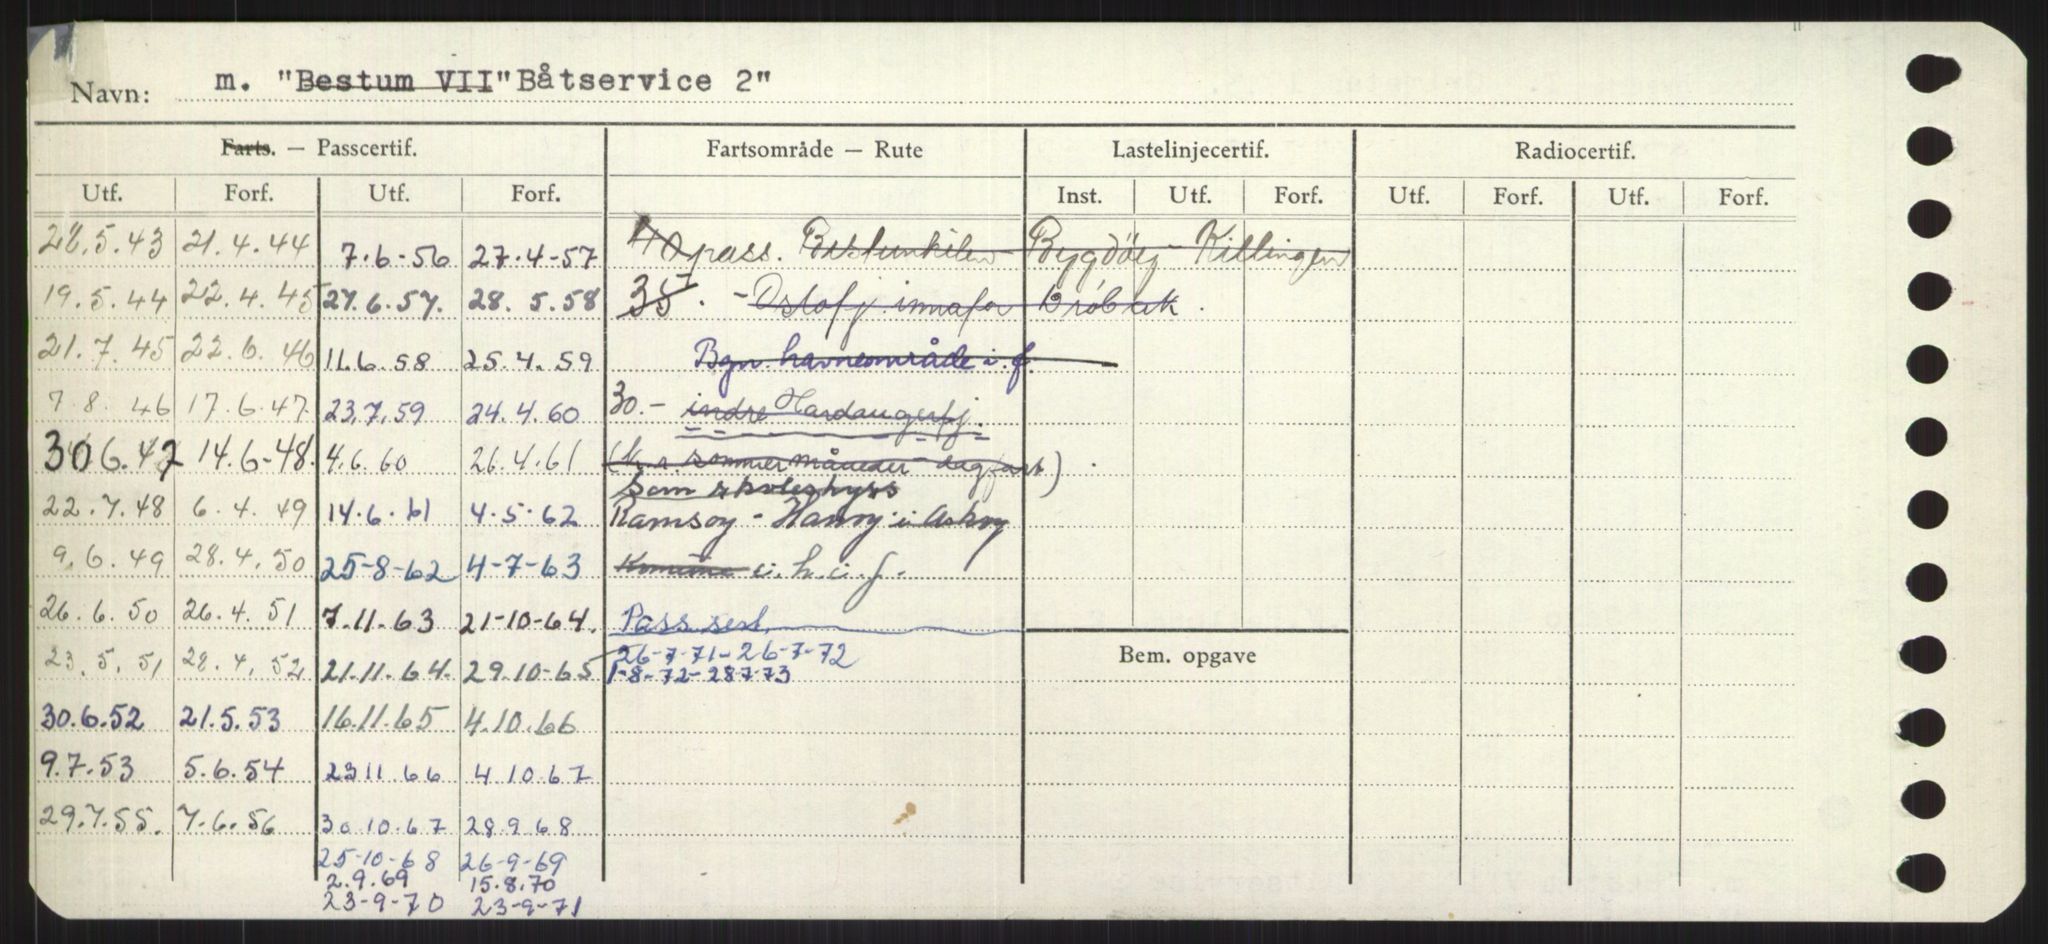 Navn: m. "Bestum VII" Båtservice 2"
Farts. — Passcertif. Fartsområde — Rute Lastelinjecertif. Radiocertif.
Utf. Forf. Utf. Forf. Inst. Utf. Forf. Utf. Forf. Utf. Forf.
28.5.43 21.4.44 7.6-56 27.4-57 40 pass. Bestumkilen - Bygdöy - Killingen
19.5.44 22.4.45 27.6.57. 28.5.58 35. - Oslofj. innafor Drøbak.
21.7.45 22.6.46 11.6.58 25.4.59 Bgn. havneområde i. f.
7.8.46 17.6.47 23.7.59 24.4.60 30.- indre Hardangerfj.
30.6.47 14.6-48. 4.6.60 26.4.61 ( sommermåneder - dagfart)
Som skoleskyss
22.7.48 6.4.49 14.6.61 4.5.62 Ramsøy - Hanøy i Askøy
9.6.49 28.4.50 25-8-62 4-7-63 i. h. i. f.
26.6.50 26.4.51 7.11.63 21-10-64. Pass sert.
23.5.51 28.4.52 21.11.64. 29.10-65 26-7-71- 26-7-72
1-8-72- 28-7-73
Bem. opgave
30.6.52 21.5.53 16.11.65 4.10.66
9.7.53 5.6.54 23 11.66 4 10.67
29.7.55. 7.6.56 30 10.67 28.9 68
25-10-68 26-9-69
2.9.69 15.8.70
23-9-70 23-9-71